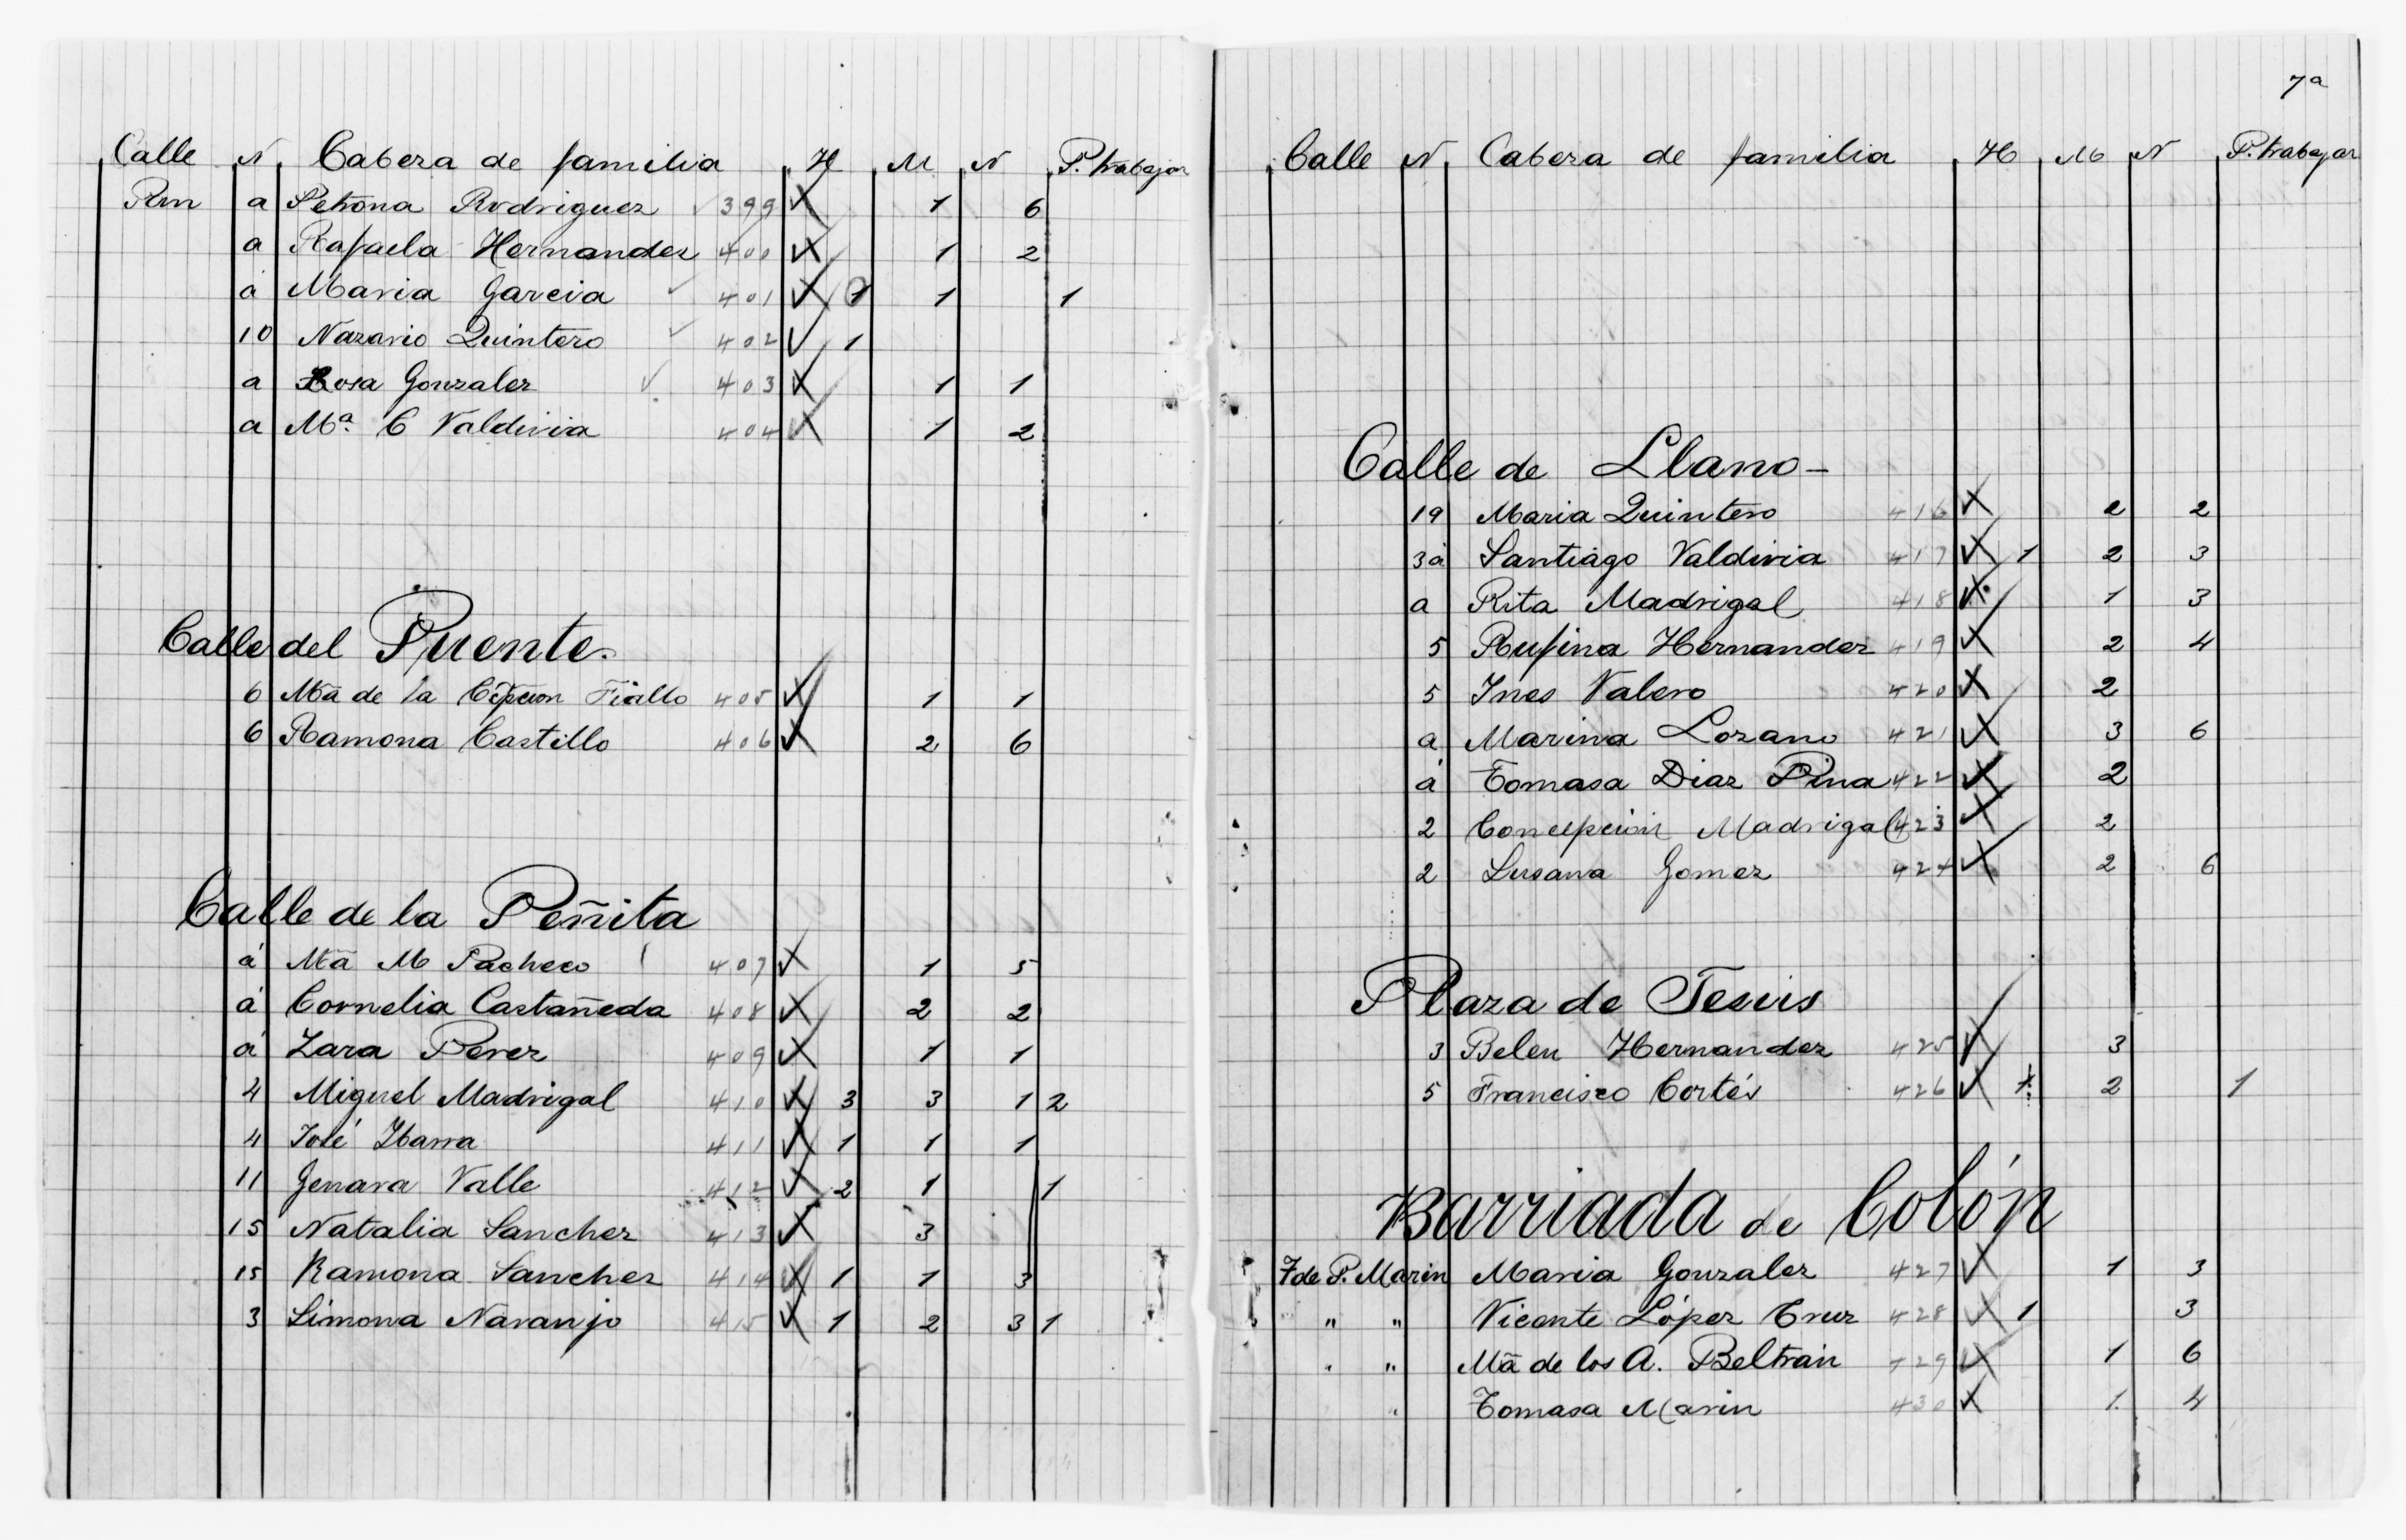 Calle N. Cabeza de familia H M N P. trabajar
Pzm a Petrona Rodriguez 399 1 6
a Rafaela Hernandez 400 1 2
á Maria Garcia 401 1 1
10 Nazario Quintero 402 1
a Rosa Gonzalez 403 1 1
a Mª C Valdivia 404 1 2
Calle del Puente.
6 Mā de la Cpcion Fiallo 405 1 1
6 Ramona Castillo 406 2 6
Calle de la Peñita
á Mā M Pacheco 407 1 5
á Cornelia Castañeda 408 2 2
á Zara Perez 409 1 1
4 Miguel Madrigal 410 3 3 1 2
4 José Ibarra 411 1 1 1
11 Genara Valle 412 2 1 1
15 Natalia Sanchez 413 3
15 Ramona Sanchez 414 1 1 3
3 Simona Naranjo 415 1 2 3 1
7ª
Calle N. Cabeza de familia H M N P. trabajar
Calle de Llano-
19 Maria Quintero 416 2 2
3á Santiago Valdivia 417 1 2 3
a Rita Madrigal 418 1 3
5 Rufina Hernandez 419 2 4
5 Ines Valero 420 2
a Marina Lozano 421 3 6
á Tomasa Diaz Pina 422 2
2 Concepcion Madrigal 423 2
2 Susana Gomez 424 2 6
Plaza de Jesus
3 Belen Hernandez 425 3
5 Francisco Cortés 426 1 2 1
Barriada de Colón
F de P. Marin Maria Gonzalez 427 1 3
" " Vicente López Cruz 428 1 3
" " Mā de los A. Beltrán 429 1 6
" Tomasa Marin 430 1 4